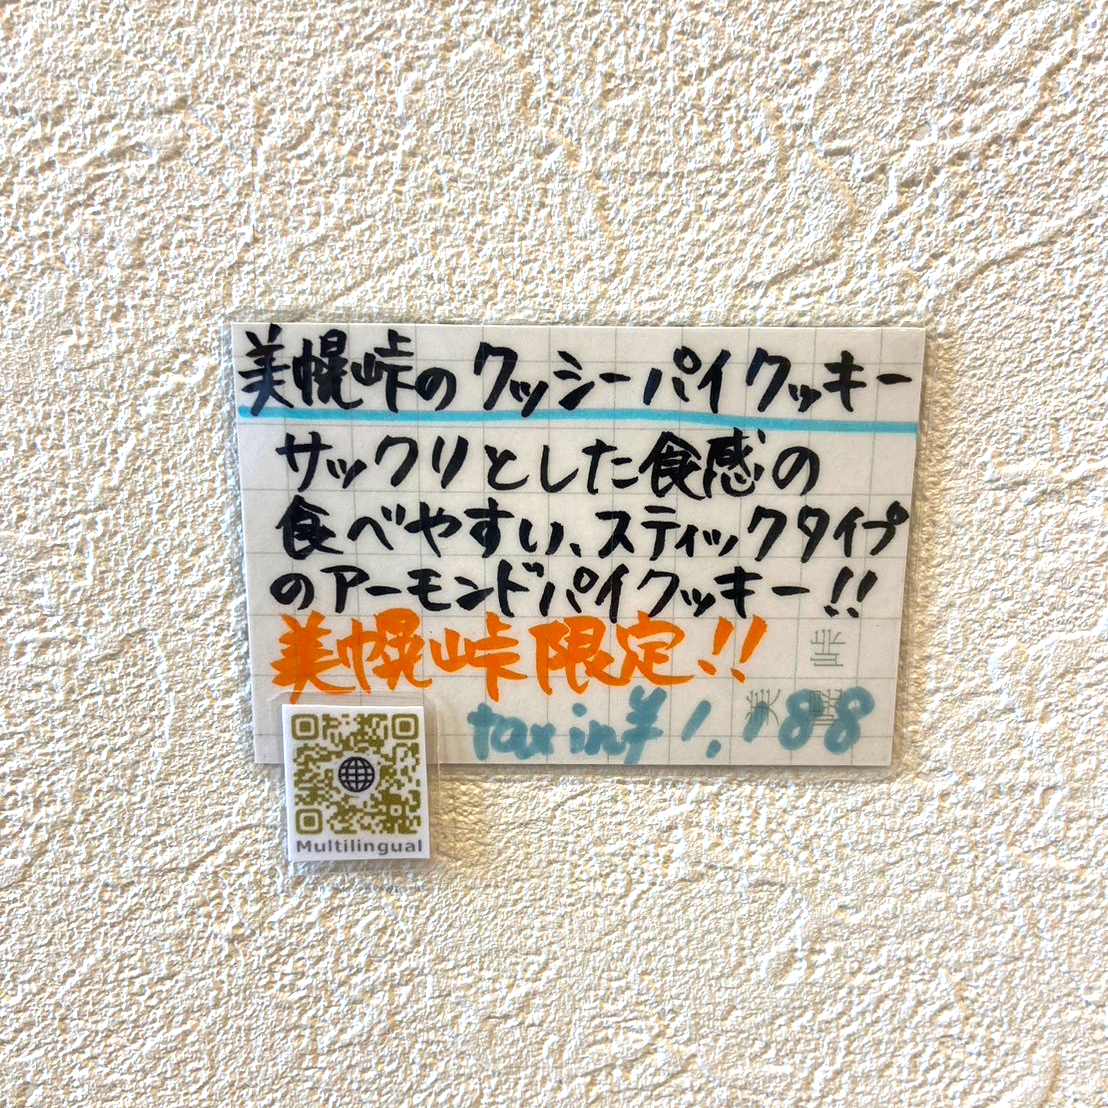 美幌峠のクッシーパイクッキー
サックリとした食感の
食べやすい、スティックタイプ
のアーモンドパイクッキー!!
美幌峠限定!!
tax in ¥1,188
Multilingual